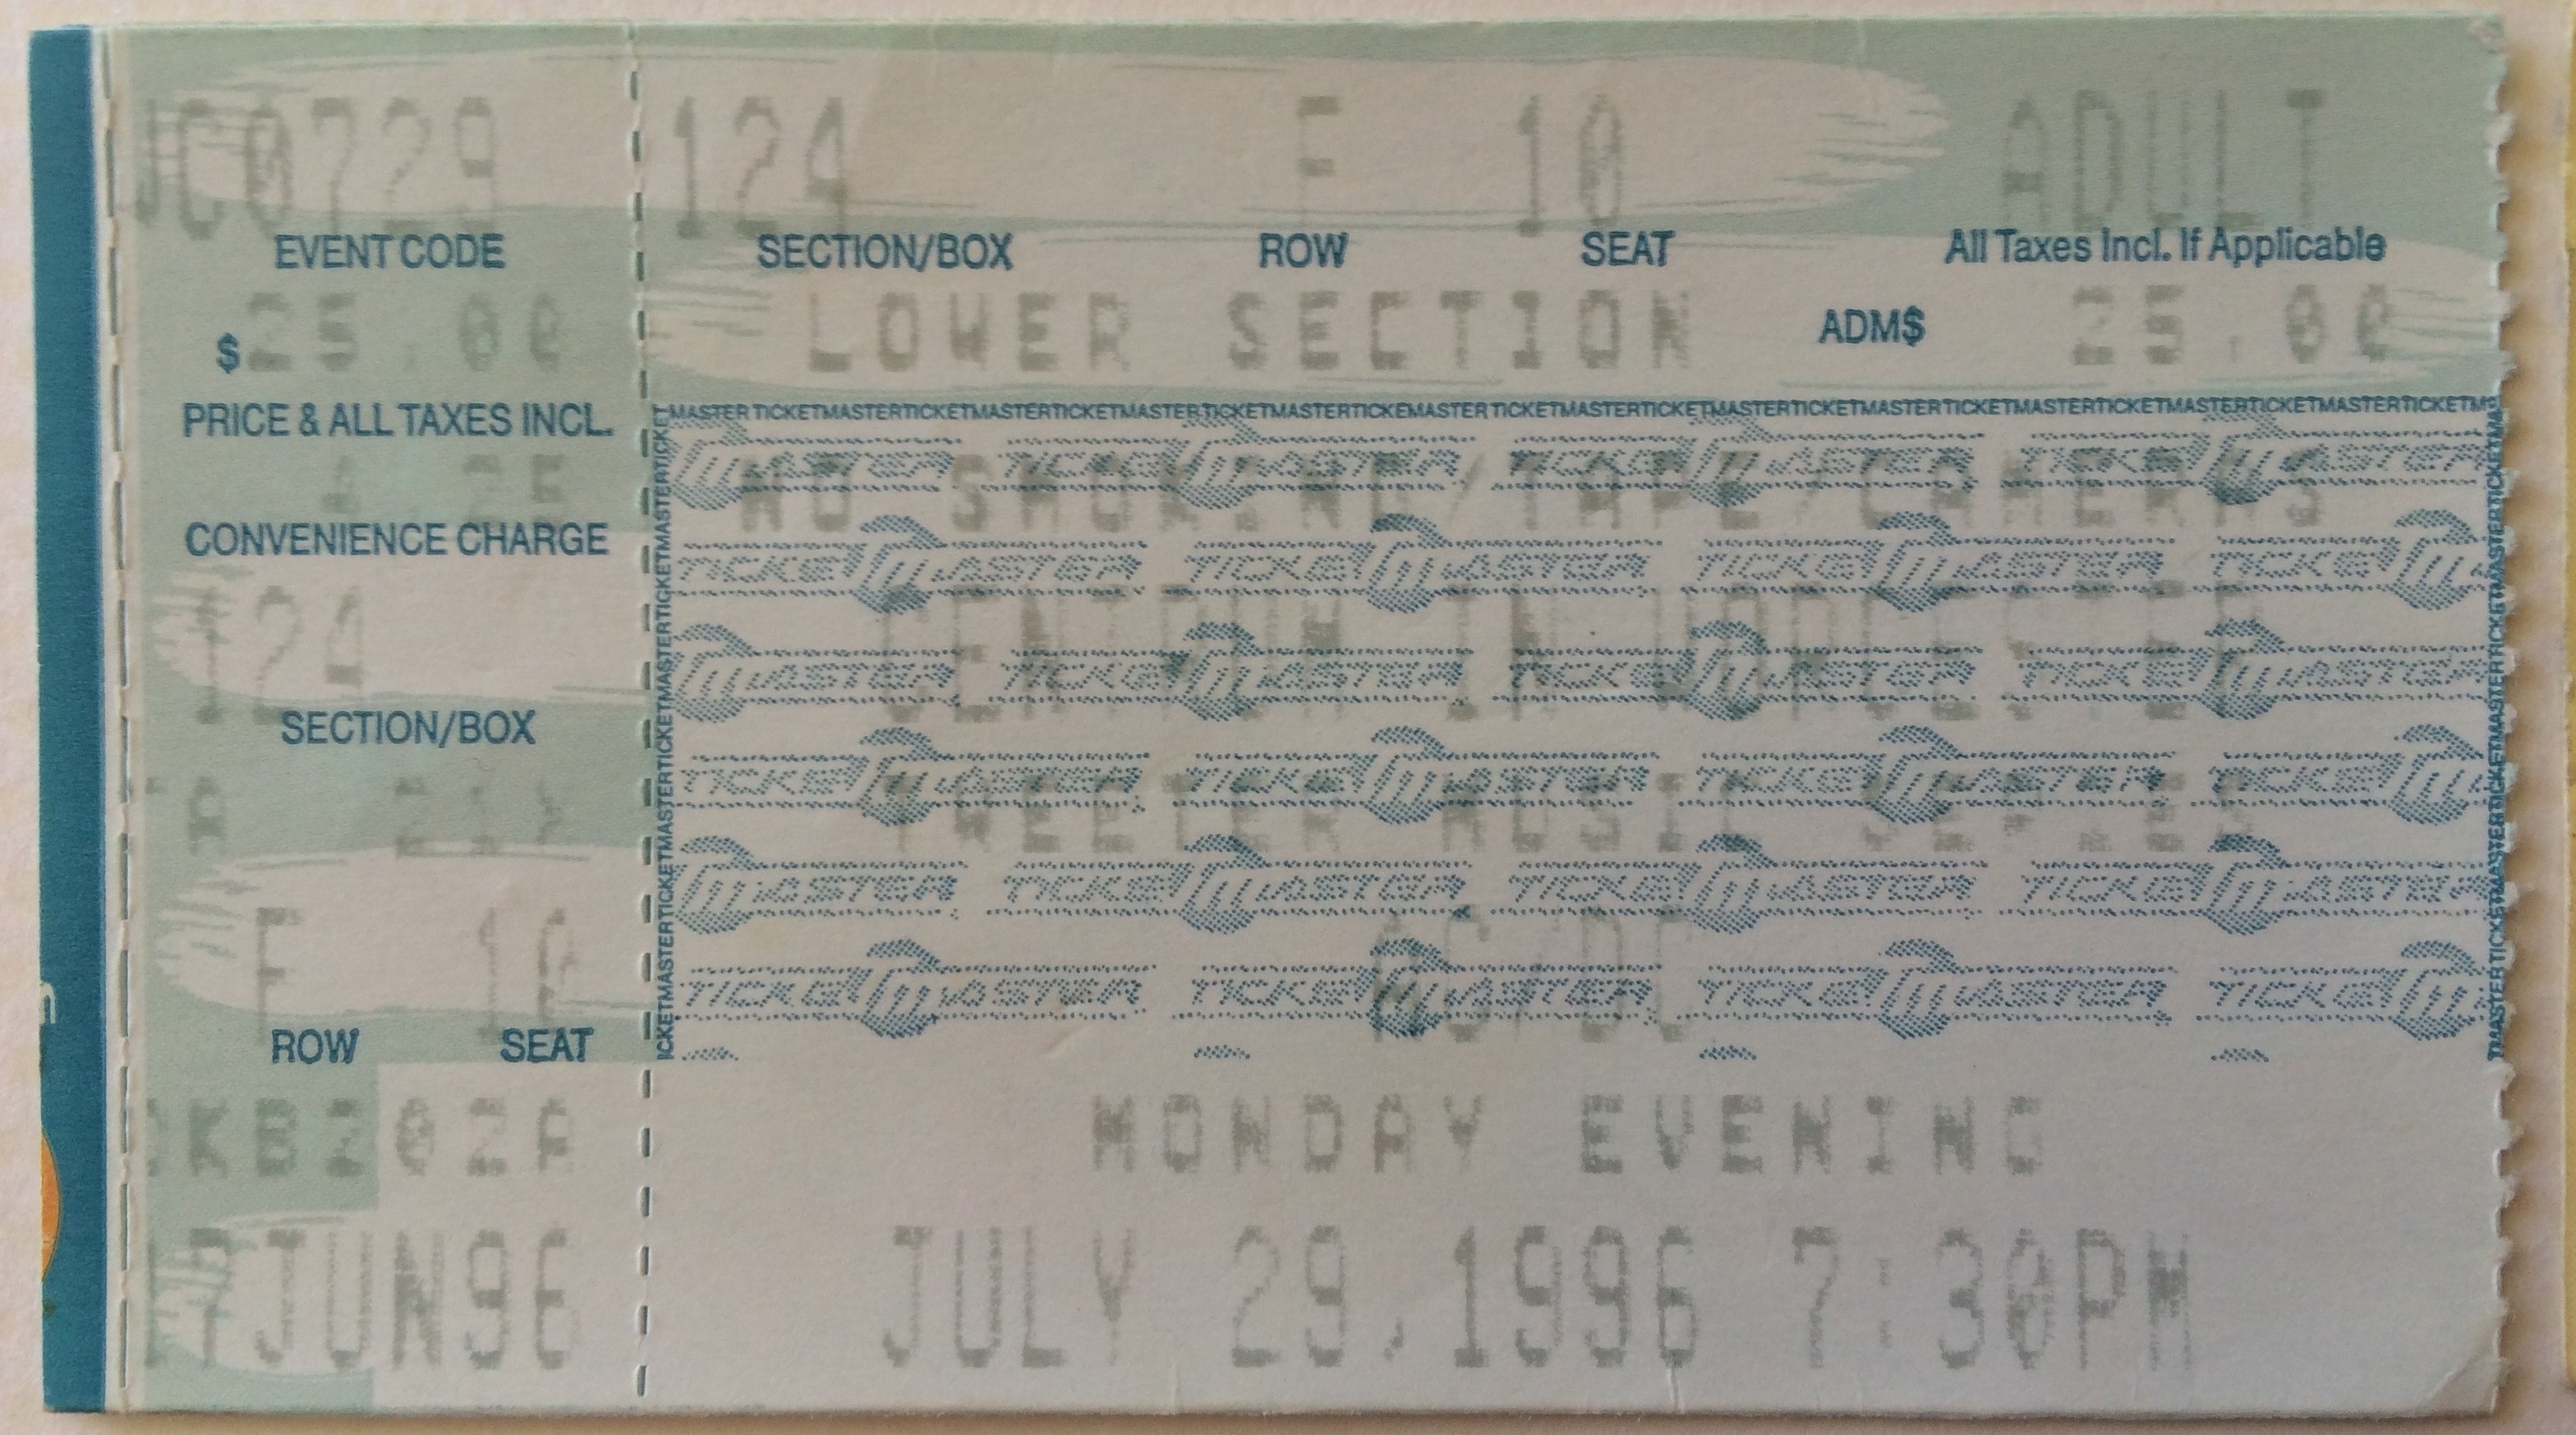 JC0729
EVENT CODE
$25.00
PRICE & ALL TAXES INCL.
CONVENIENCE CHARGE
124
SECTION/BOX
F 10
ROW SEAT
KB202A
JUN96
124 F 10 ADULT
SECTION/BOX ROW SEAT All Taxes Incl. If Applicable
LOWER SECTION ADM$ 25.00
MASTER TICKETMASTERTICKETMASTERTICKETMASTERTICKETMASTERTICKEMASTER TICKETMASTERTICKETMASTERTICKETMASTERTICKETMASTERTICKETMASTERTICKETMAS
NO SMOKING/TAPE/CAMERAS
CENTRUM IN WORCESTER
TICKETMASTER TICKETMASTER TICKETMASTER
AC/DC
MONDAY EVENING
JULY 29,1996 7:30PM